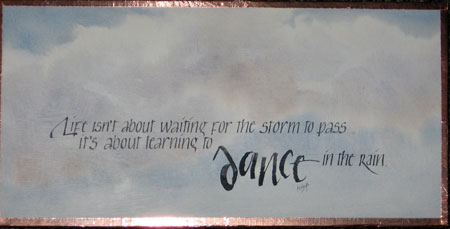 Life isn't about waiting for the storm to pass
it's about learning to
dance in the rain.